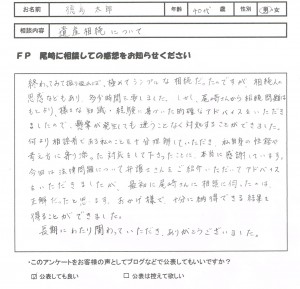 お名前 徳島 太郎 年齢 40代 歳 性別 男・女
相談内容 遺産相続について
ＦＰ 尾崎に相談しての感想をお知らせください
終わってみて振り返れば、極めてシンプルな相続だったのですが、相続人の
思惑などもあり、多少時間を要しました。しかし、尾崎さんから相続問題は
もとより、様々な知識・経験に基づいた的確なアドバイスをいただき
ましたので、懸案が発生しても迷うことなく対処することができました。
何より相談者である私のことを十分理解していただき、私自身の性格や
考えも に寄り添った対応をして下さったことに、本当に感謝しています。
今回は法律問題について弁護士さんをご紹介いただいてアドバイス
をいただきましたが、最初に尾崎さんに相談に伺ったのは
正解だったと思います。おかげ様で、十分に納得できる結果を
得ることができました。
長期にわたり関わっていただき、ありがとうございました。
・このアンケートをお客様の声としてブログなどで公表してもいいですか？
☑ 公表しても良い □ 公表は控えて欲しい